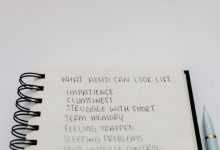 WHAT ADHD CAN LOOK LIKE:
· IMPATIENCE
· CLUMSINESS
· STRUGGLE WITH SHORT
TERM MEMORY
· FEELING TRAPPED
· SLEEPING PROBLEMS
· POOR IMPULSE CONTROL